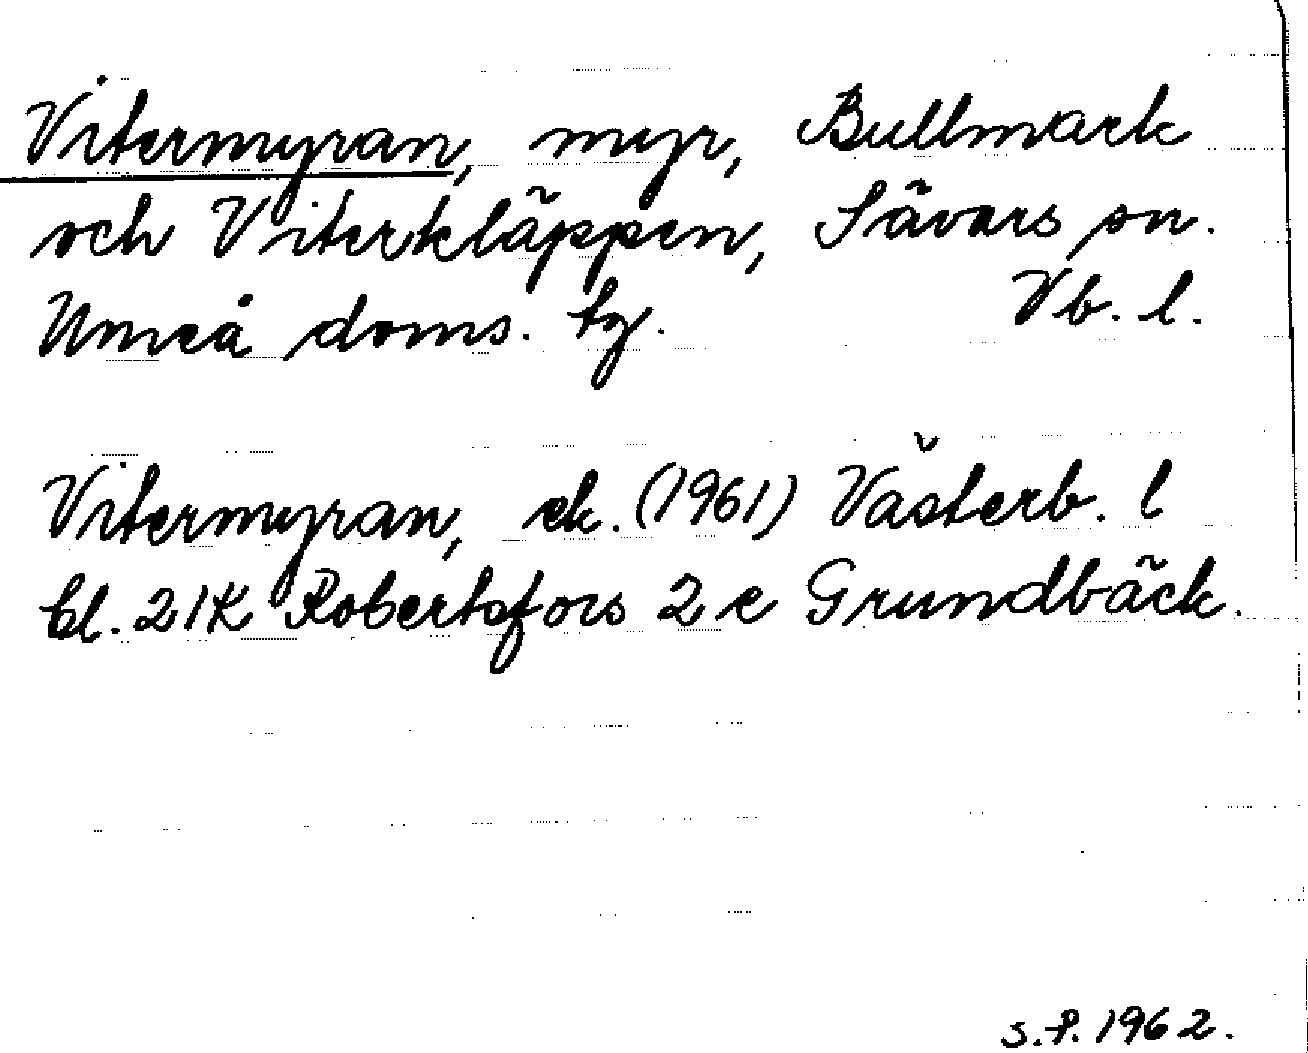 Vitermyran, myr, Bullmark
och Viterkläppen, Sävars sn.
Umeå doms. tg. Vb. l.
Vitermyran, ek. (1961) Västerb. l
bl. 21K Robertsfors 2 e Grundbäck.
S.P. 1962.